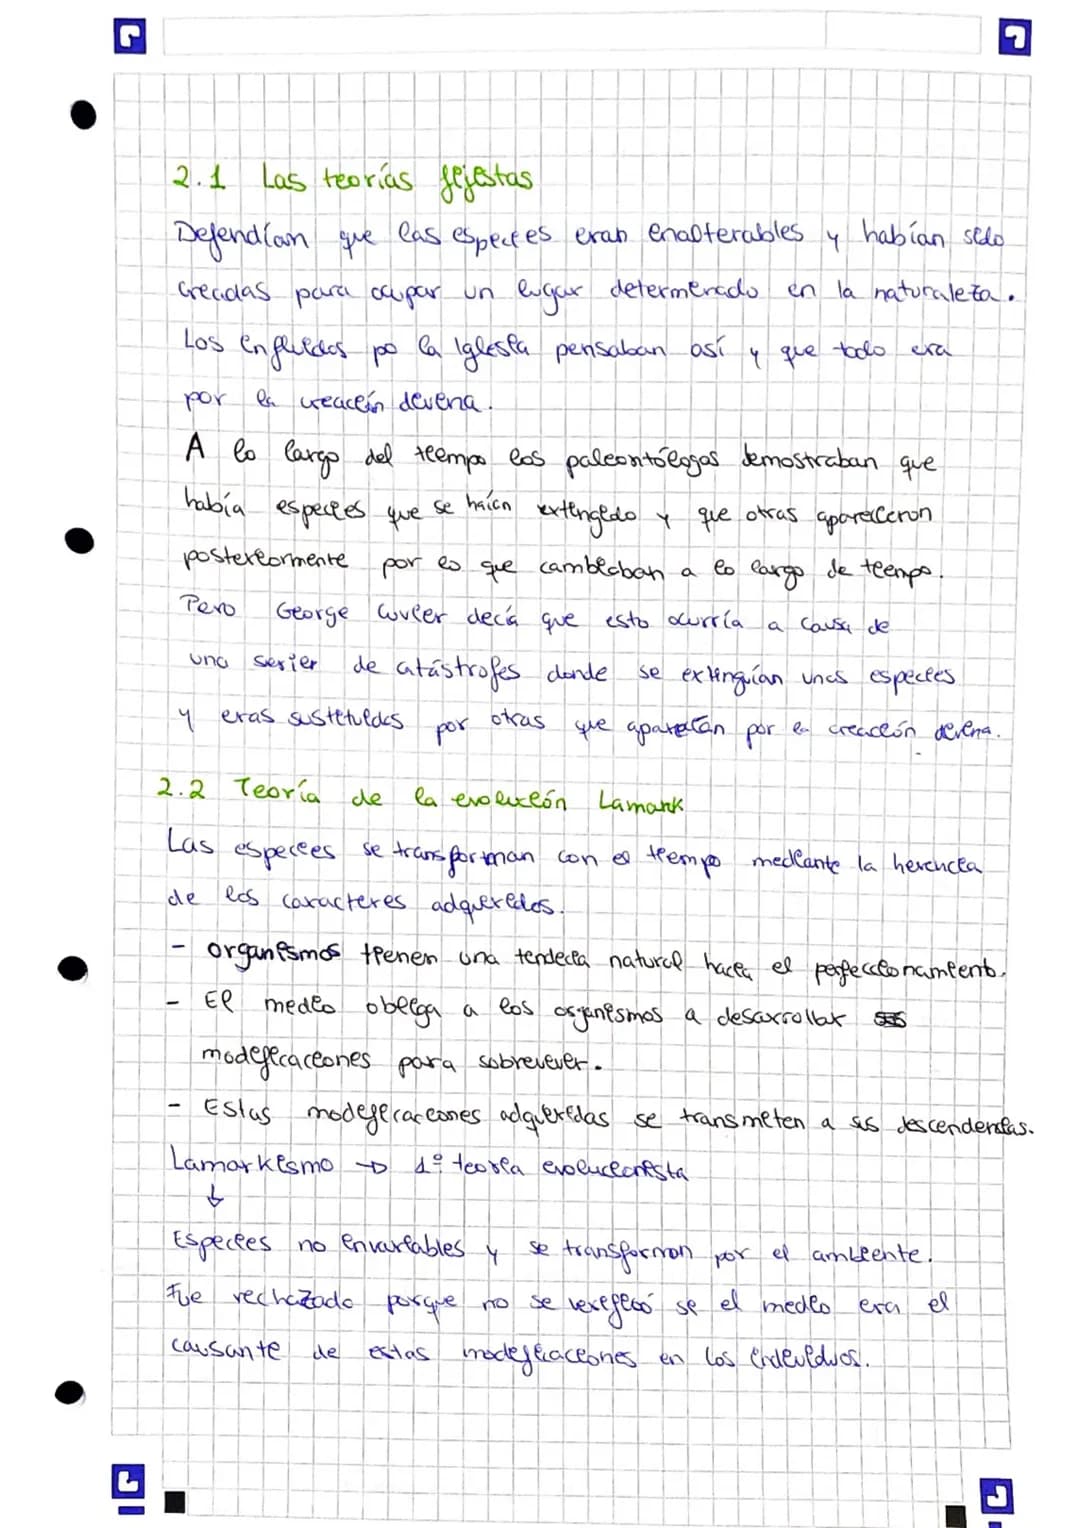 2.1 Las teorías fijistas
Defendían que las especies eran inalterables y habían sido
creadas para ocupar un lugar determinado en la naturaleza.
Los influidos po la Iglesia pensaban así y que todo era
por la creación divina.
A lo largo del tiempo los paleontólogos demostraban que
había especies que se haían extingido y que otras aparecieron
posteriormente por lo que cambiaban a lo largo de tiempo.
Pero George Cuvier decía que esto ocurría a causa de
una serier de catástrofes donde se extinguían unas especies
y eras sustituidas por otras que aparecían por la creación divina.
2.2 Teoría de la evolución Lamark
Las especies se transforman con el tiempo mediante la herencia
de los caracteres adquiridos.
- organismos tienen una tendecia natural hacia el perfeccionamiento.
- El medio obliga a los organismos a desarrollar
modificaciones para sobrevivir.
- Estas modificaciones adquiridas se transmiten a sus descendencias.
Lamarkismo → 1º teoría evolucionista
↓
Especies no invariables y se transforman por el ambiente.
Fue rechazado porque no se verificó si el medio era el
causante de estas modificaciones en los individuos.